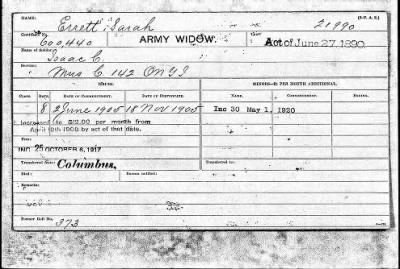 NAME: (U. S. A. S.)
Errett, Sarah 21990
Certificate No.
600,440 ARMY WIDOW. Act of June 27, 1890
Name of Soldier:
Isaac C.
Service:
Mus C. 142 O N G I
ISSUE. MINORS—$2 PER MONTH ADDITIONAL.
CLASS. RATE. DATE OF COMMENCEMENT. DATE OF CERTIFICATE. NAME. COMMENCEMENT.
8 2 June 1905 18 Nov 1905 Inc 30 May 1, 1920
Increased to $12.00 per month from
April 19th 1908 by act of that date.
INC 25 OCTOBER 6, 1917
Transferred from Columbus, Transferred to:
Died: Bureau notified:
Remarks:
Former Roll No.
373